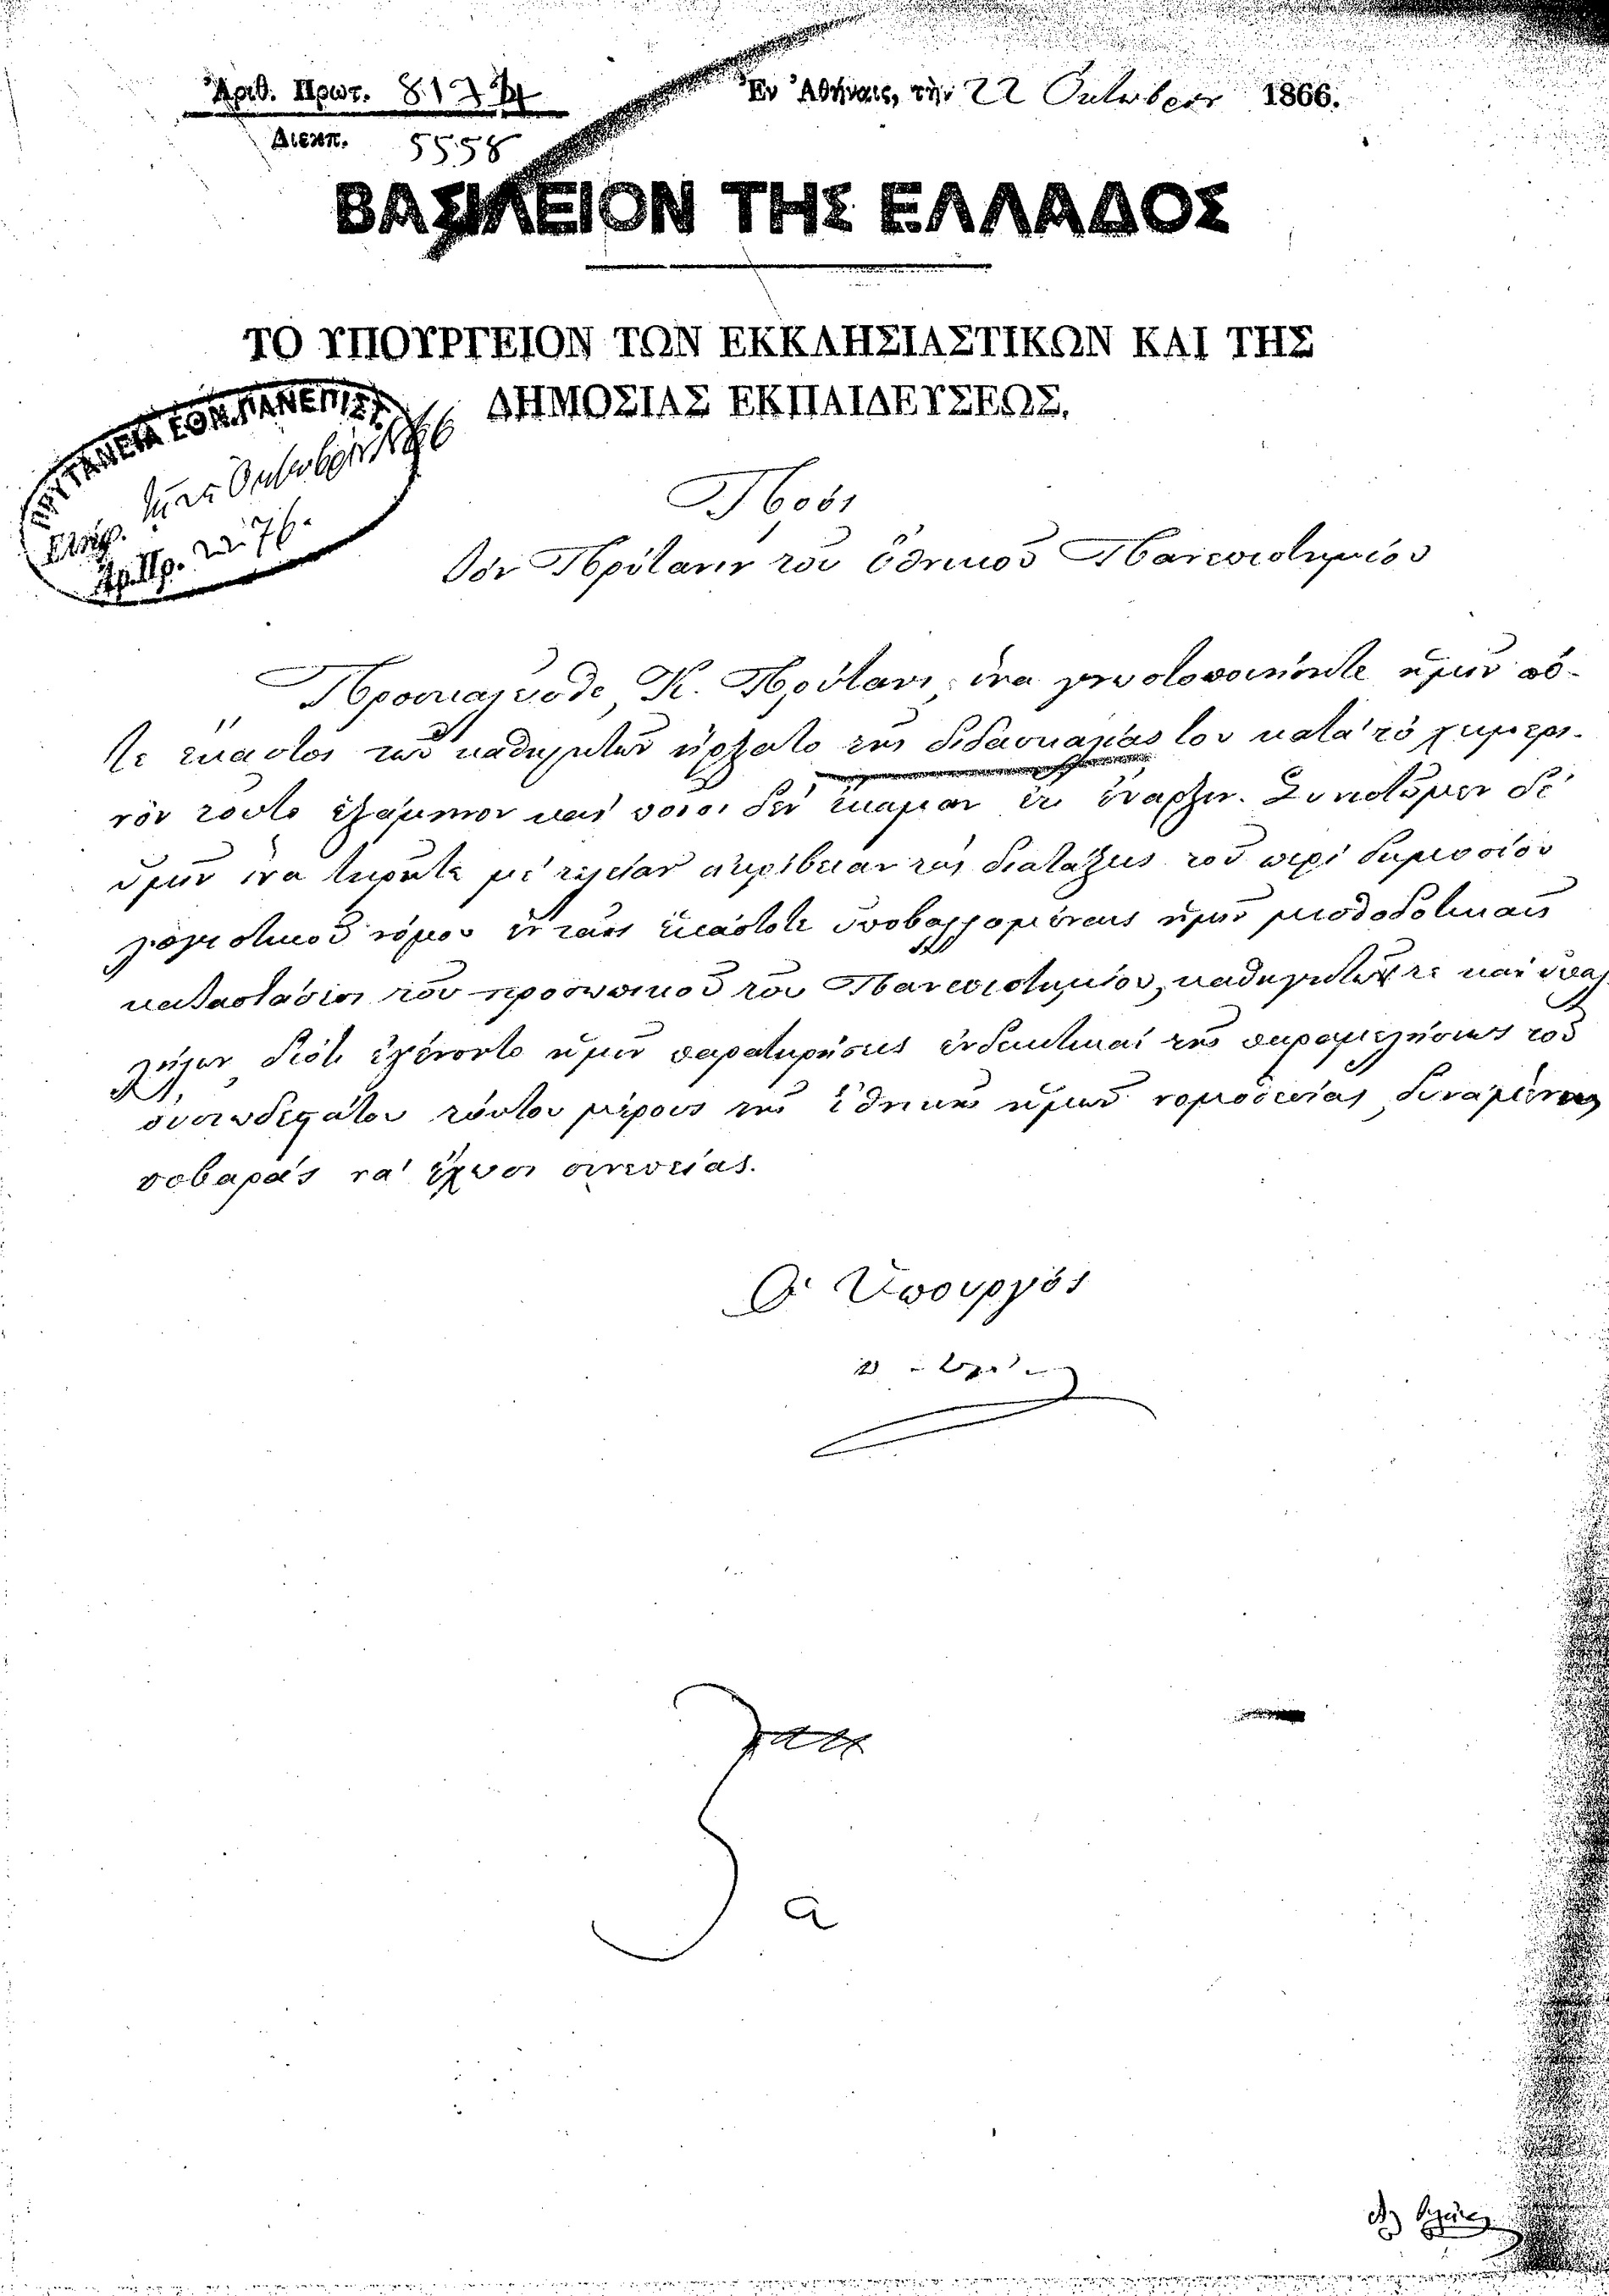 Ἀριθ. Πρωτ. 8174
Διεκπ. 5558
Ἐν Ἀθήναις, τὴν 22 Ὀκτωβρίου 1866.
ΒΑΣΙΛΕΙΟΝ ΤΗΣ ΕΛΛΑΔΟΣ
ΤΟ ΥΠΟΥΡΓΕΙΟΝ ΤΩΝ ΕΚΚΛΗΣΙΑΣΤΙΚΩΝ ΚΑΙ ΤΗΣ
ΔΗΜΟΣΙΑΣ ΕΚΠΑΙΔΕΥΣΕΩΣ.
ΠΡΥΤΑΝΕΙΑ ΕΘΝ. ΠΑΝΕΠΙΣΤ.
Ὀκτωβρίου 1866
Ἀρ. Πρ. 2276.
Πρὸς
τὸν Πρύτανιν τοῦ Ἐθνικοῦ Πανεπιστημίου
Προσκαλεῖσθε, Κ. Πρύτανι, ἵνα γνωστοποιήσητε ἡμῖν πό-
τε ἕκαστος τῶν καθηγητῶν ἤρξατο τῆς διδασκαλίας του κατὰ τὸ χειμερι-
νὸν τοῦτο ἑξάμηνον καὶ ποῖοι δὲν ἔκαμαν ἔτι ἔναρξιν. Συνιστῶμεν δὲ
ὑμῖν ἵνα τηρῆτε μὲ τελείαν ἀκρίβειαν τὰς διατάξεις τοῦ περὶ δημοσίου
λογιστικοῦ νόμου ἐν ταῖς ἑκάστοτε ὑποβαλλομέναις ἡμῖν μισθοδοτικαῖς
καταστάσεσι τοῦ προσωπικοῦ τοῦ Πανεπιστημίου, καθηγητῶν τε καὶ ὑπαλ-
λήλων, διότι ἐγένοντο ἡμῖν παρατηρήσεις ἐνδεικτικαὶ τῆς παραμελήσεως τοῦ
οὐσιωδεστάτου τούτου μέρους τῆς ἐθνικῆς ἡμῶν νομοθεσίας, δυναμένης
σοβαρὰς νὰ ἔχωσι συνεπείας.
Ὁ Ὑπουργός
α